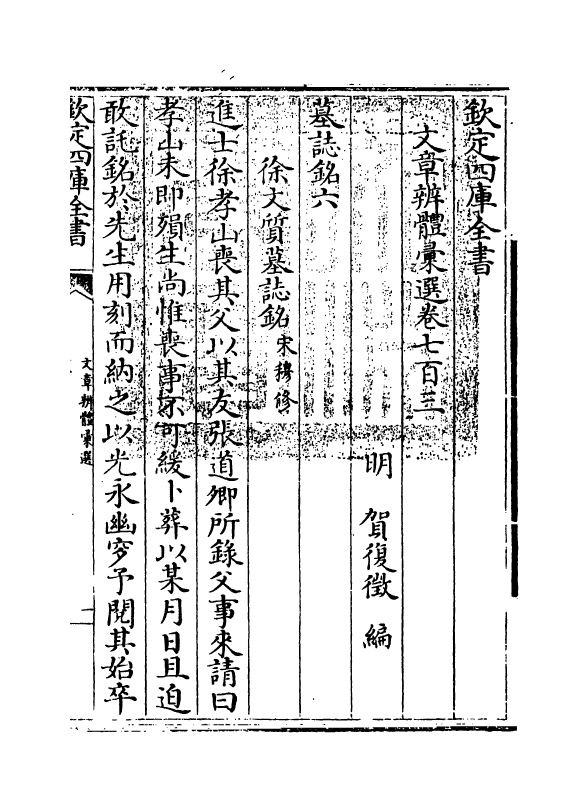 欽定四庫全書
文章辨體彙選卷七百三
明 賀復徵 編
墓誌銘六
徐文質墓誌銘宋穆修
進士徐孝山喪其父以其友張道卿所錄父事來請曰
孝山未即殞生尚惟喪事不可緩卜葬以某月日且迫
敢託銘於先生用刻而納之以光永幽穸予閱其始卒
欽定四庫全書
文章辨體彙選
一